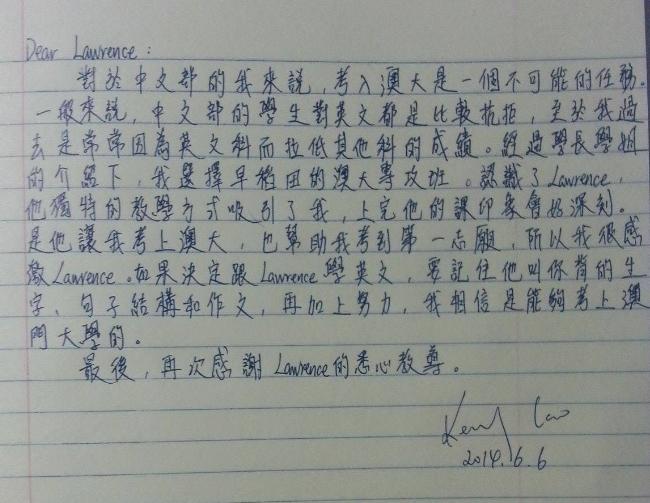 Dear Lawrence:
對於中文部的我來說，考入澳大是一個不可能的任務。
一般來說，中文部的學生對英文都是比較抗拒，至於我過
去是常常因為英文科而拉低其他科的成績。經過學長學姐
的介紹下，我選擇早稻田的澳大專攻班。認識了Lawrence，
他獨特的教學方式吸引了我，上完他的課印象會好深刻。
是他讓我考上澳大，也幫助我考到第一志願，所以我很感
激Lawrence。如果決定跟Lawrence學英文，要記住他叫你背的生
字、句子結構和作文，再加上努力，我相信是能夠考上澳
門大學的。
最後，再次感謝Lawrence的悉心教導。
2014.6.6